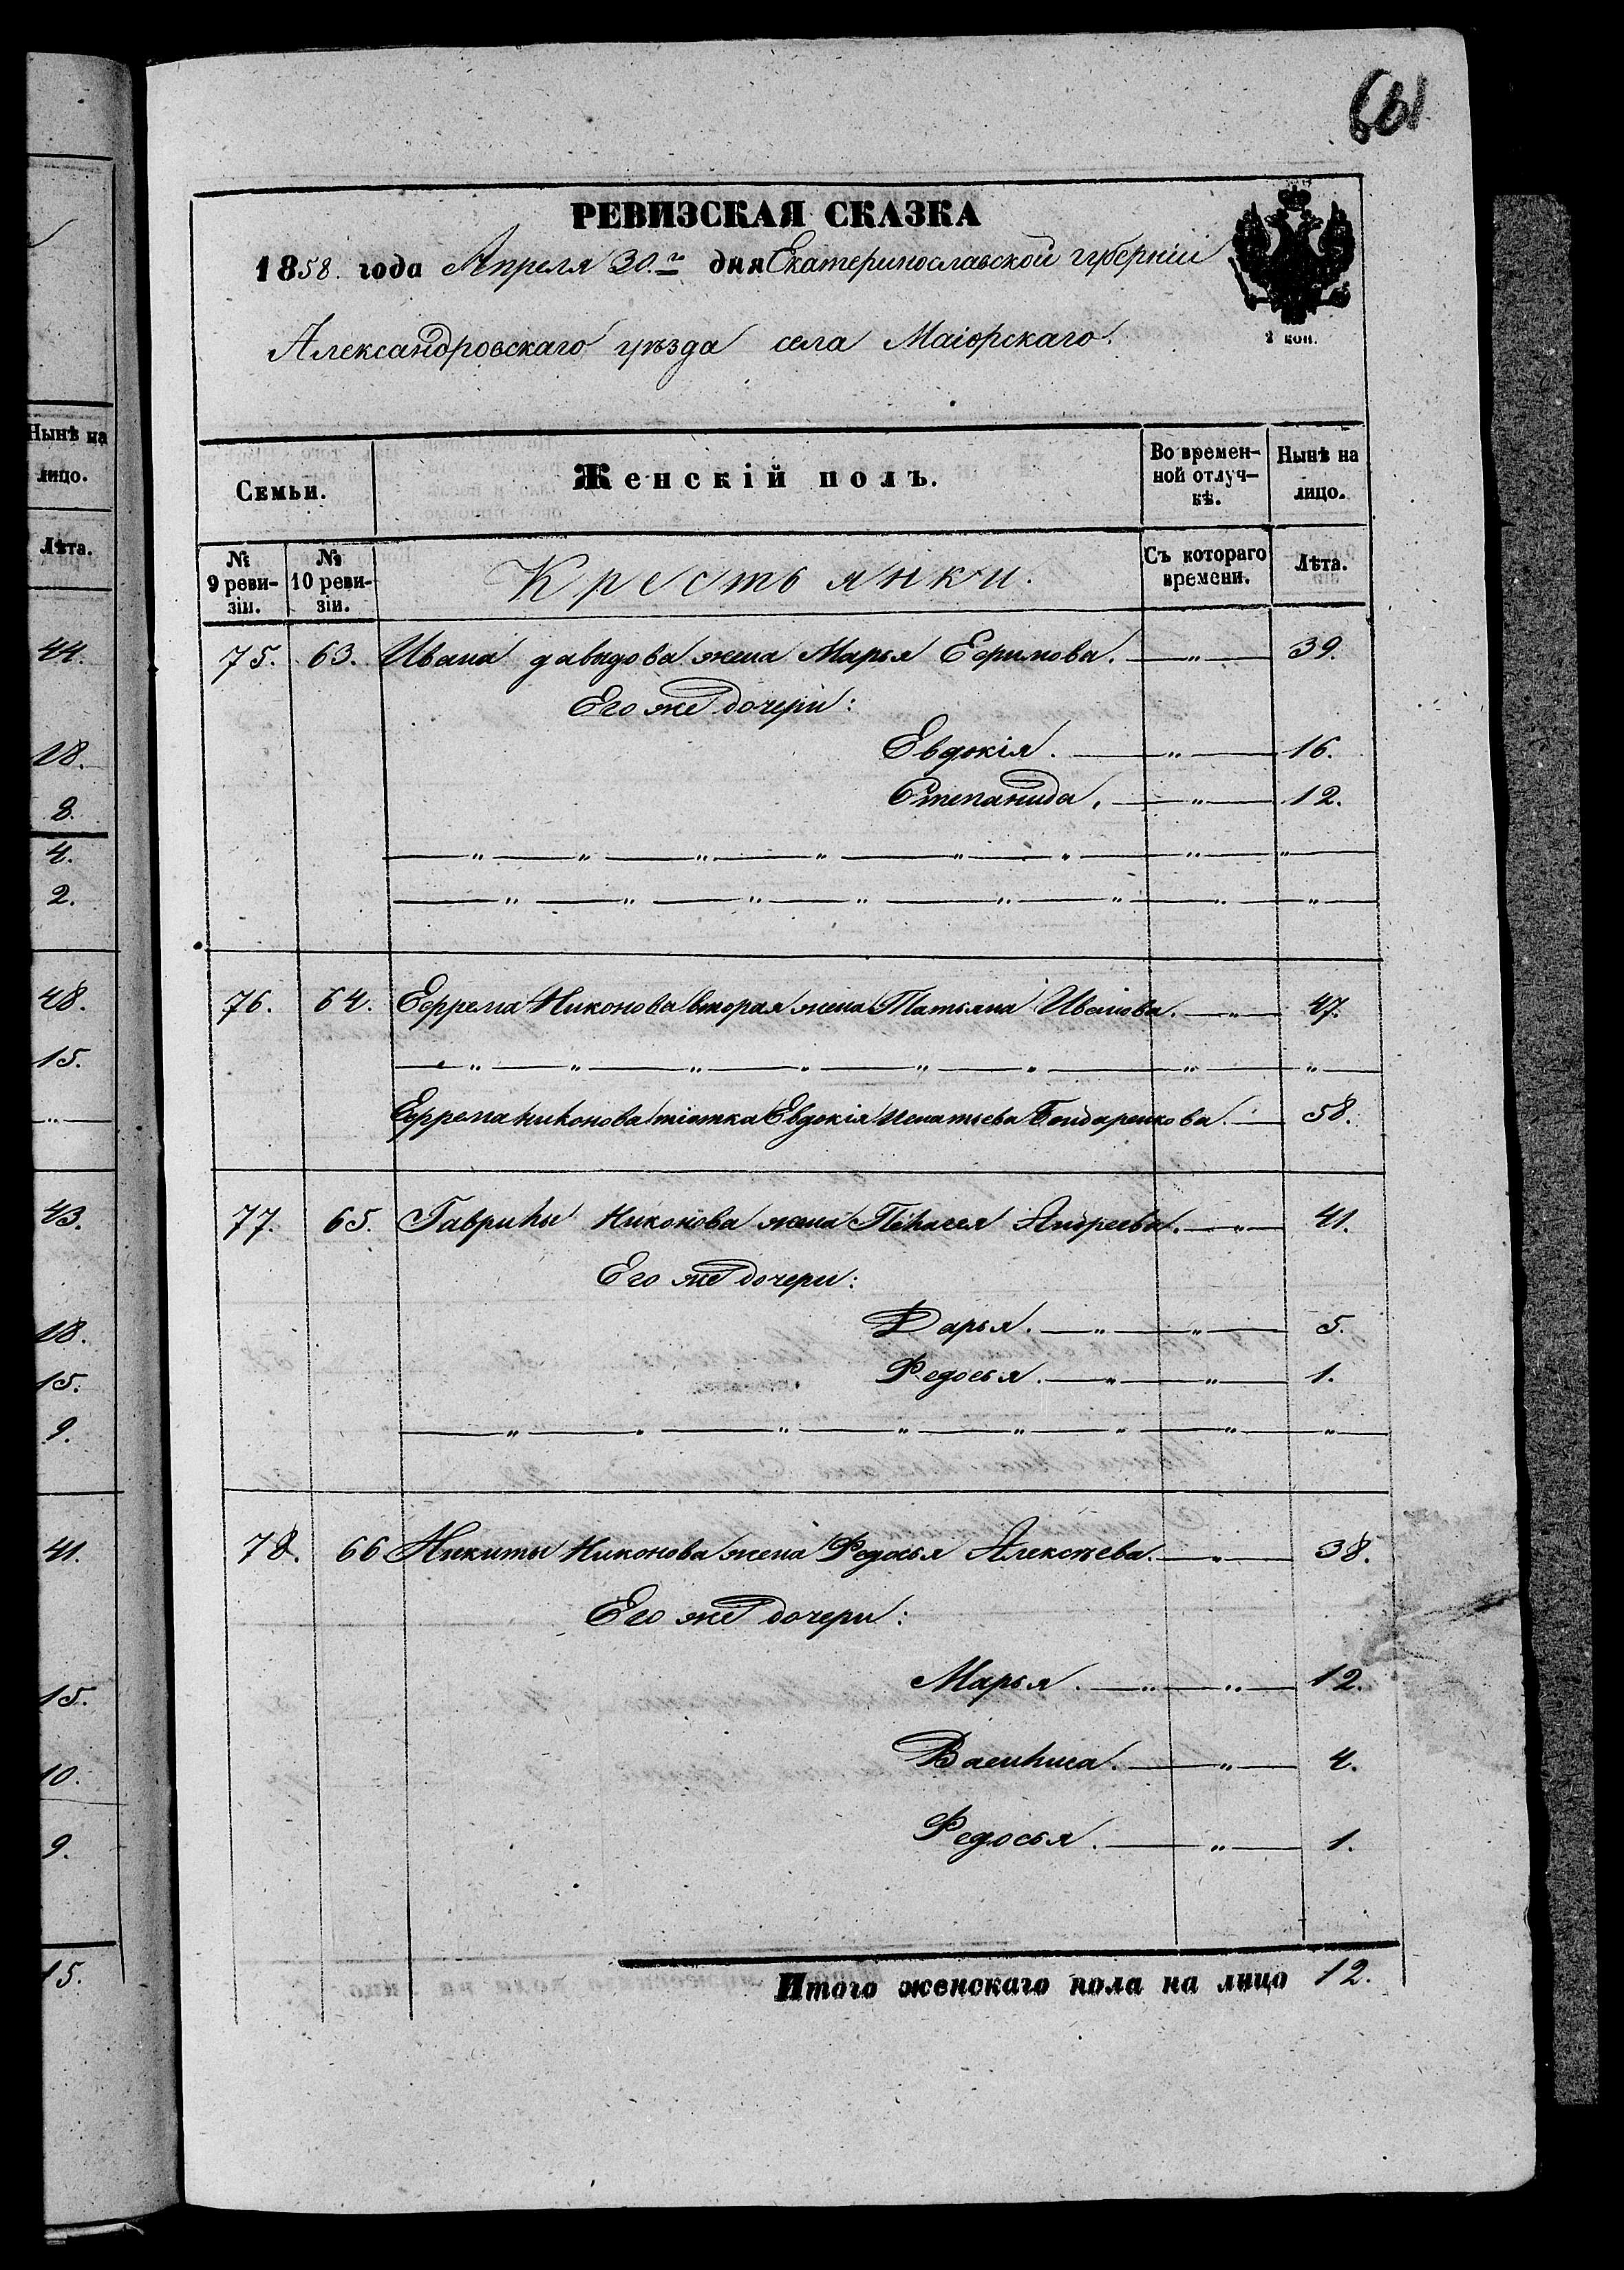 661
РЕВИЗСКАЯ СКАЗКА
1858. года Апреля 30.го дня Екатеринославской губерніи
Александровскаго уѣзда села Маіорскаго.
2 коп.
Семьи.
Женскій полъ.
Во времен-
ной отлуч-
кѣ.
Нынѣ на
лицо.
№
9 реви-
зіи.
№
10 реви-
зіи.
Крестьянки.
Съ котораго
времени.
Лѣта.
75. 63. Ивана давыдова жена Марья Ефимова. — " — 39.
Его же дочери:
Евдокія. — " — 16.
Степанида. — " — 12.
— " — " — " — " — " — " — " — "
— " — " — " — " — " — " — " — "
76. 64. Ефрема Никонова вторая жена Татьяна Иванова. — " — 47.
— " — " — " — " — " — " — " — "
Ефрема никонова тіотка Евдокія Игнатьева Бондаренкова. — 58.
77. 65. Гаврилы Никонова жена Пелагея Андреева. — " — 41.
Его же дочери:
Дарья. — " — " — 5.
Федосья. — " — " — 1.
— " — " — " — " — " — " — " — "
78. 66 Никиты Никонова жена Федосья Алексѣева. — " — 38.
Его же дочери:
Марья. — " — " — 12.
Василиса. — " — 4.
Федосья. — " — 1.
Итого женскаго пола на лицо 12.
Нынѣ на
лицо.
Лѣта.
44.
18.
8.
4.
2.
48.
15.
— " —
43.
18.
15.
9.
41.
15.
10.
9.
15.